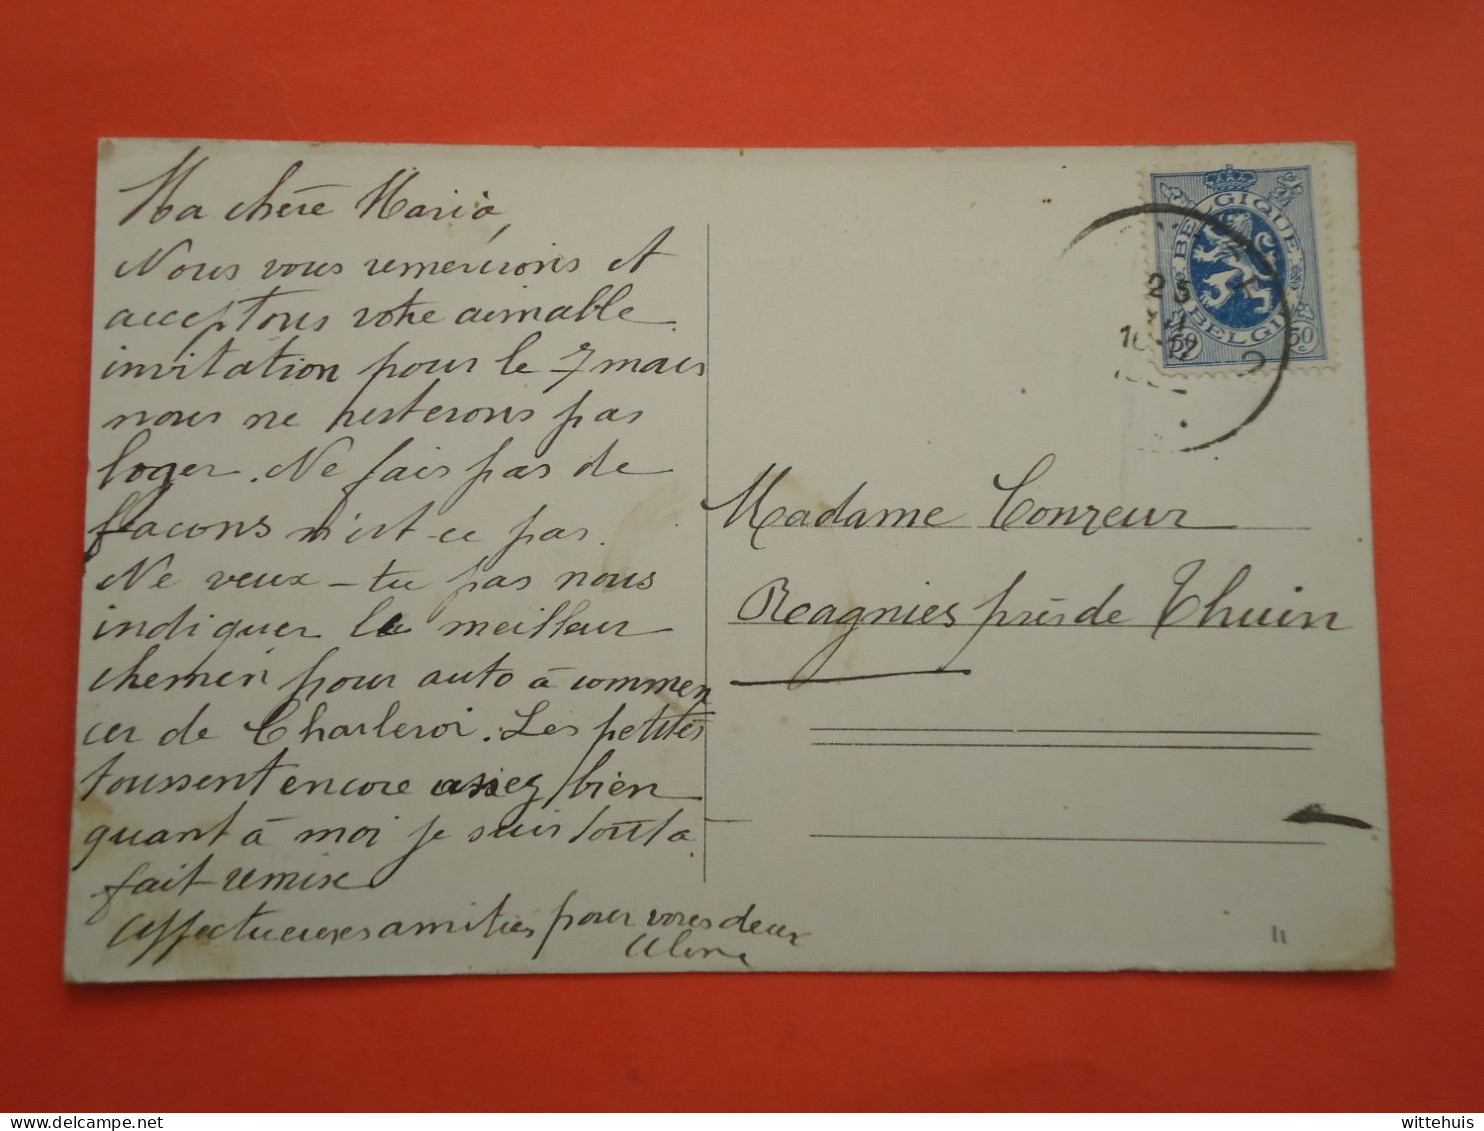 Ma chère Maria,
Nous vous remercions et
acceptons votre aimable
invitation pour le 7 mais
nous ne resterons pas
loger. Ne fais pas de
facons n'est-ce pas.
Ne veux-tu pas nous
indiquer le meilleur
chemin pour auto à commen
cer de Charleroi. Les petites
toussent encore assez bien
quant à moi je suis tout à
fait remise
Affectueuses amitiés pour vous deux
BELGIQUE
BELGIË
50 50
25
Madame Conreur
Ragnies près de Thuin
11
wittehuis